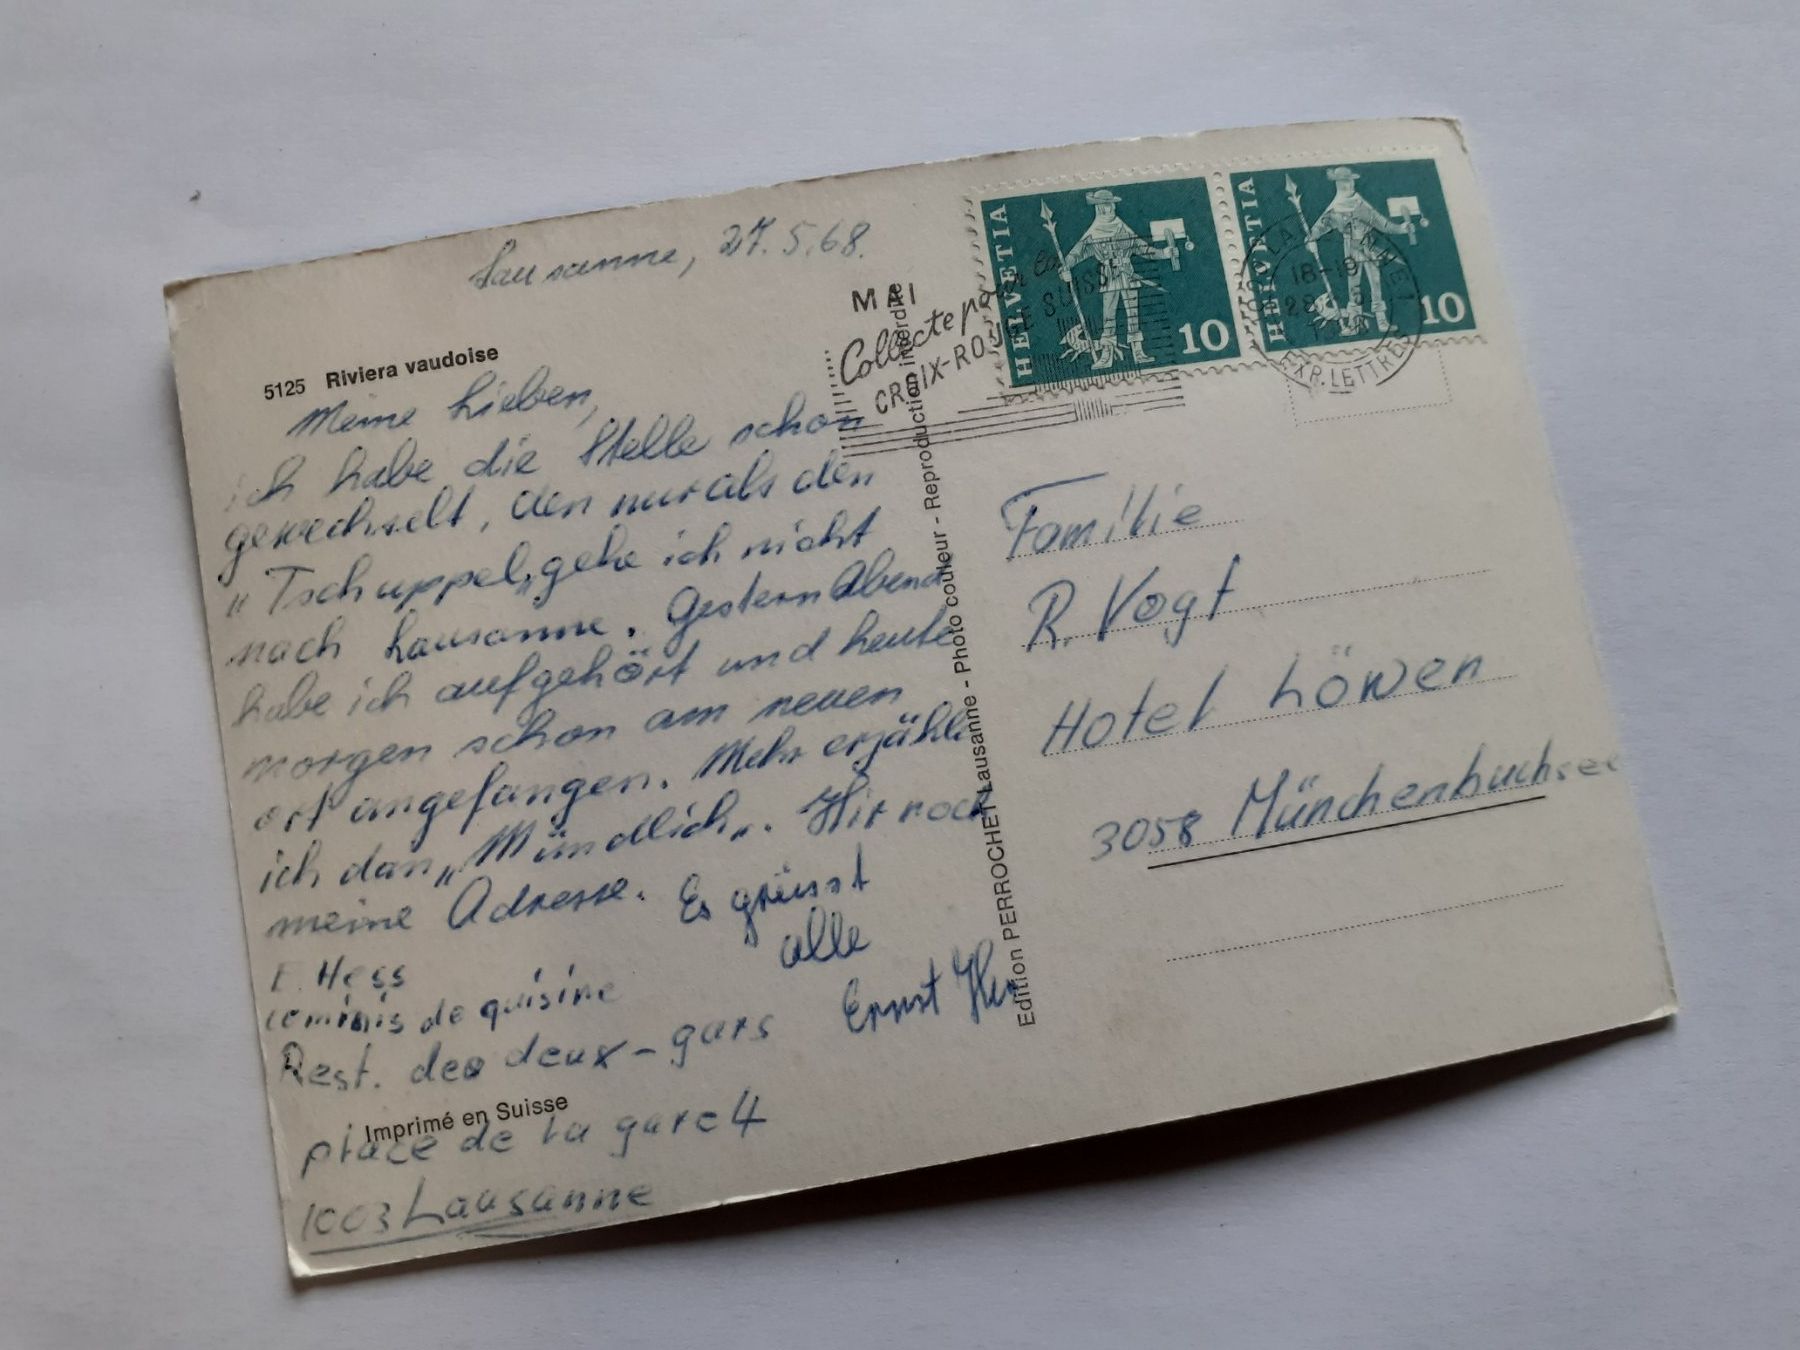 Lausanne, 27.5.68.
5125 Riviera vaudoise
Meine Lieben,
ich habe die Stelle schon
gewechselt, den nur als den
"Tschuppel" gehe ich nicht
nach Lausanne. Gestern Abend
habe ich aufgehört und heute
morgen schon am neuen
ort angefangen. Mehr erzähle
ich dan „Mündlich„. Hir noch
meine Adresse. Es grüsst
alle
Ernst Hess
E. Hess
commis de quisine
Rest. des deux-gars
place de la gare 4
1003 Lausanne
Imprimé en Suisse
Edition PERROCHET Lausanne - Photo couleur - Reproduction interdite
MAI
Collecte pour la
CROIX-ROUGE SUISSE
HELVETIA 10
HELVETIA 10
LAUSANNE 1
18-19
28
EXP. LETTRES
Familie
R. Vogt
Hotel Löwen
3058 Münchenbuchsee